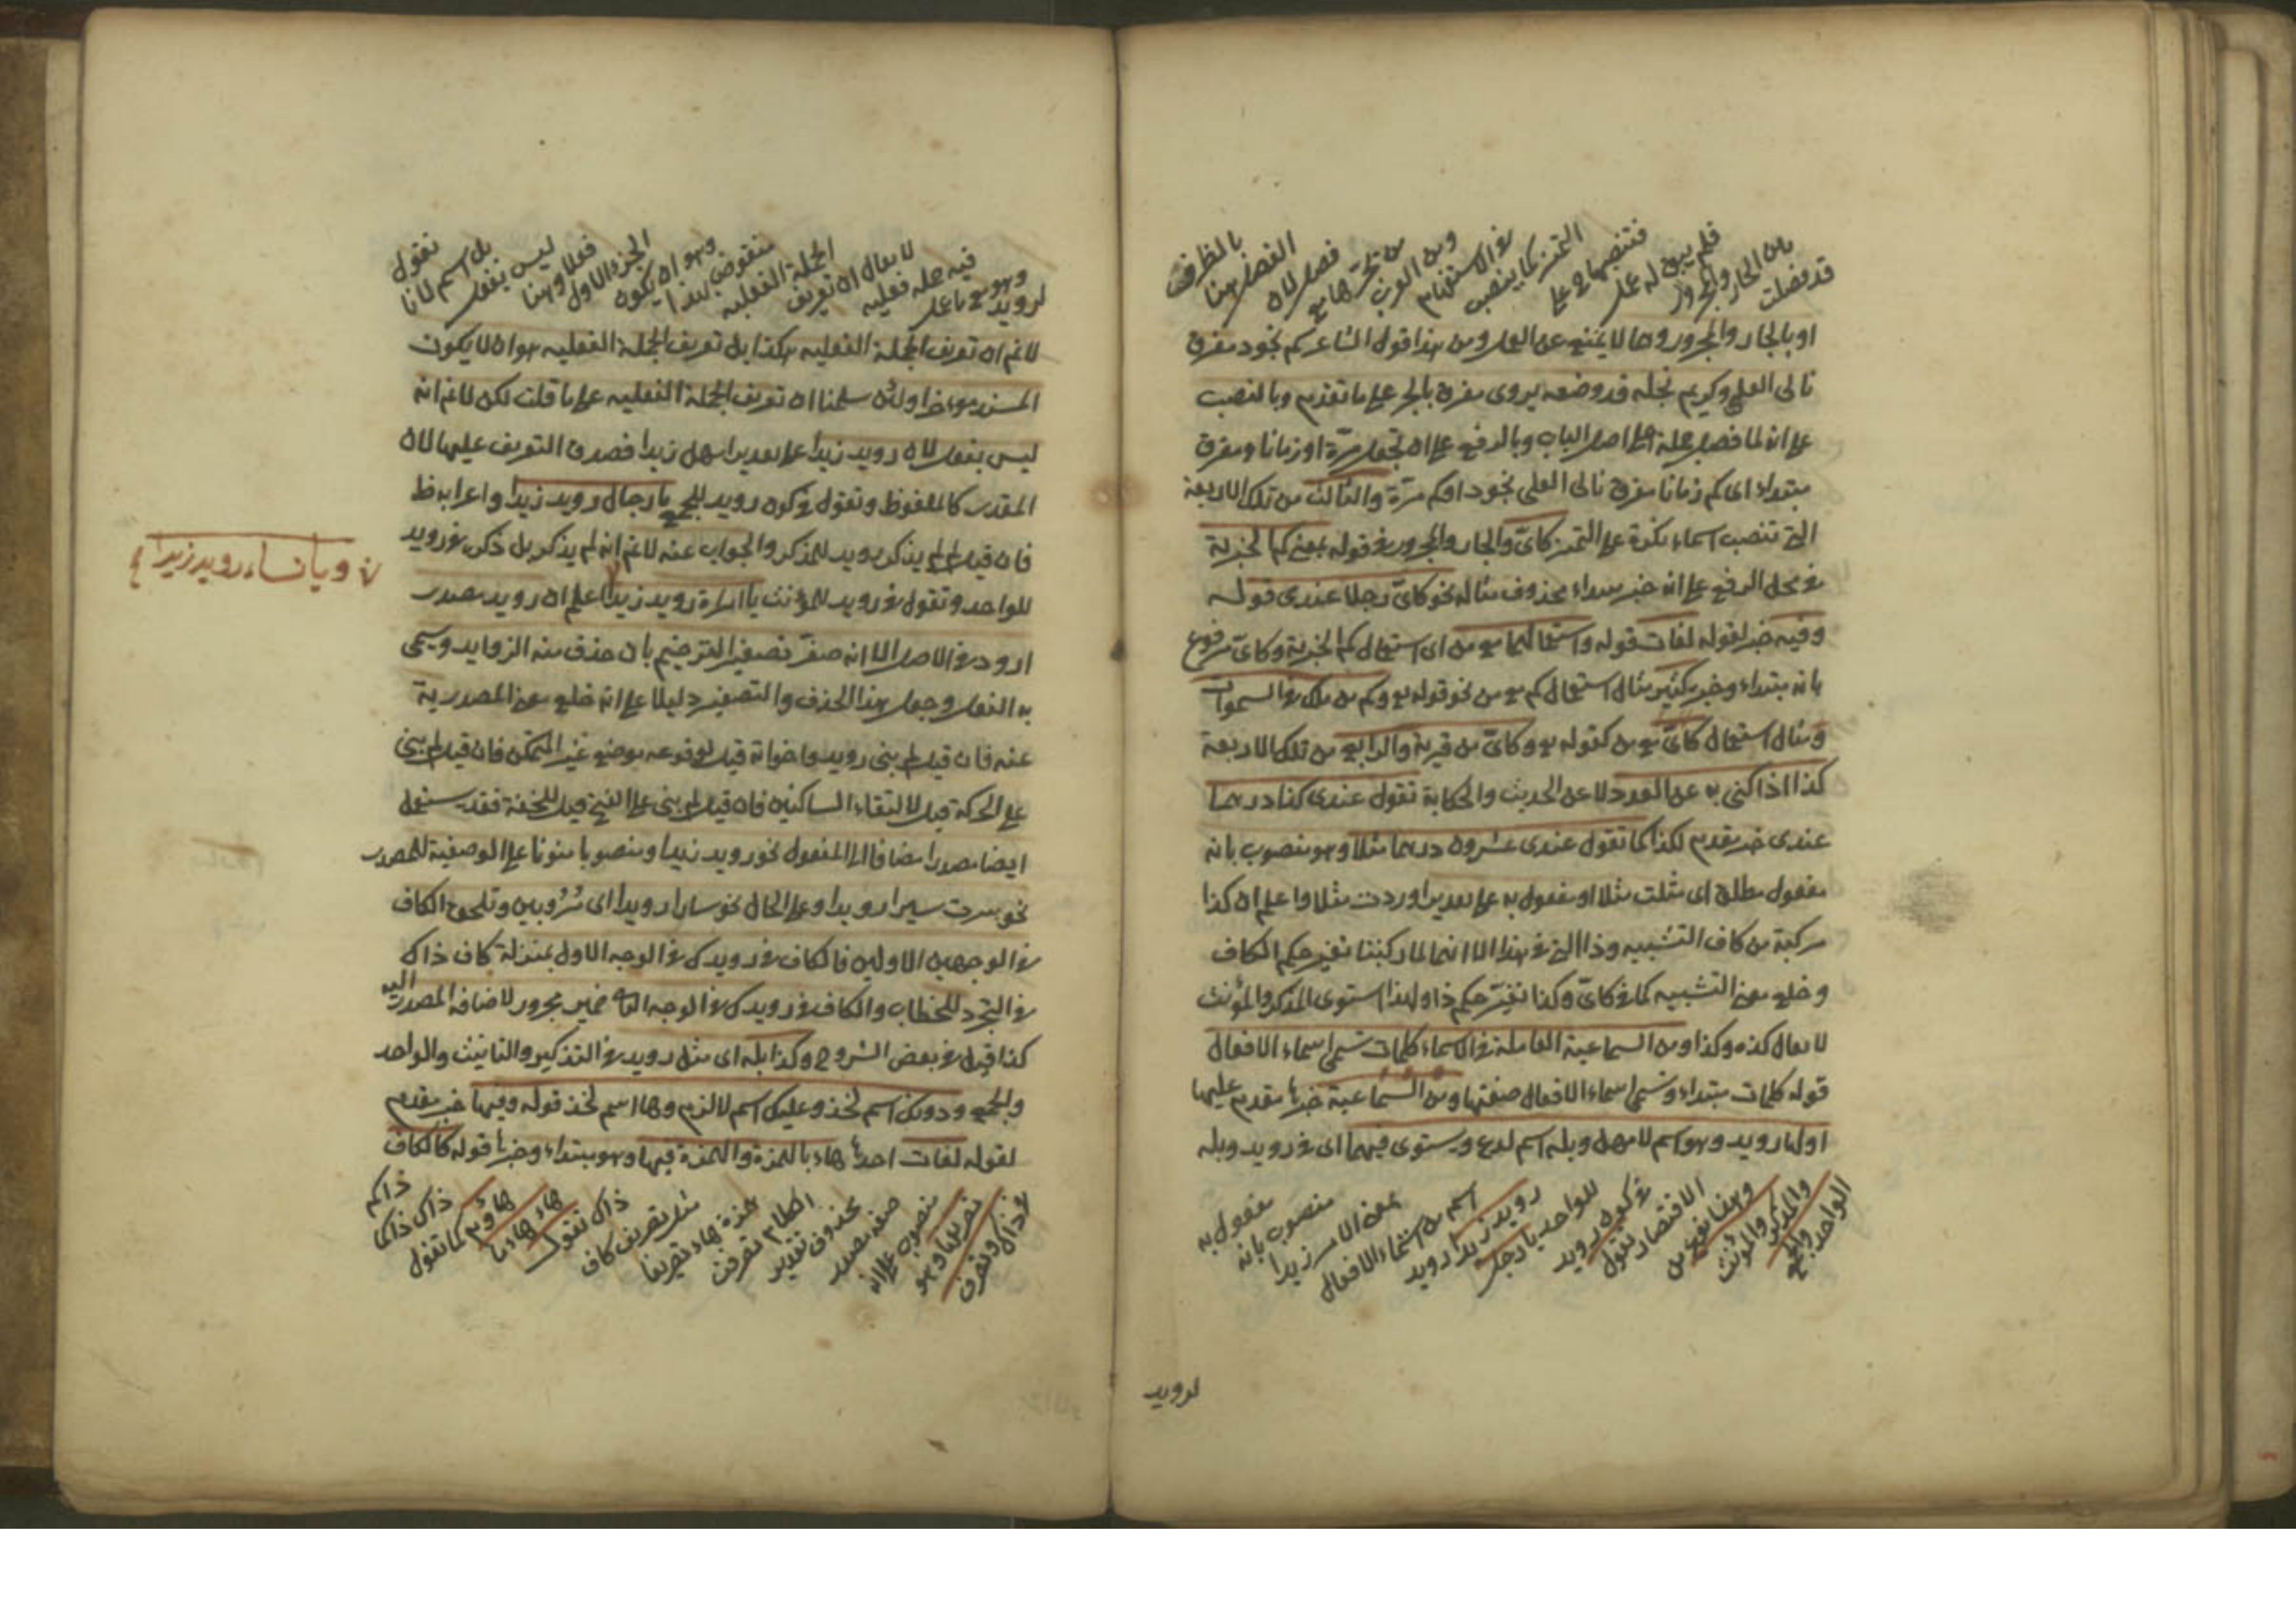 قد فصلت بين الجار والمجرور فلم يبق له عمل فتنصبها على التميز كما ينصب في الاستفهام ومن العرب من يجرها مع فصل لان الفصل هنا بالظرف
او بالجار والمجرور وهما لا يمنع عن العمل ومن هذا قول الشاعر كم بجود مقرف
نالى العلى وكريم بخله قد وضعه يروى مقرف بالجر على ما تقدم وبالنصب
على انه لما فصل حمله على اصل الباب وبالرفع على ان تجعل مرة او زمانا ومقرف
مبتداء اى كم زمانا مقرف نالى العلى بجود او كم مرة والثالث من تلك الاربعة
التى تنصب اسماء نكرة على التميز كاىّ والجار والمجرور فى قوله بمعنى كم الخبرية
فى محل الرفع على انه خبر مبتداء محذوف مثاله نحو كاىّ رجلا عندى قوله
وفيه خبر لقوله لغات قوله واستعمالهما مع من اى استعمال كم الخبرية وكاىّ مرفوع
بانه مبتداء وخبره كثير مثال استعمال كم مع من نحو قوله تع وكم من ملك فى السموات
ومثال استعمال كاىّ مع من كقوله تع وكاىّ من قرية والرابع من تلك الاربعة
كذا اذا كنى به عن العدد لا عن الحديث والحكاية تقول عندى كذا درهما
عندى خبر مقدم لكذا كما تقول عندى عشرون درهما مثلا وهو منصوب بانه
مفعول مطلق اى مثلت مثلا او مفعول به على تقدير اوردت مثلا واعلم ان كذا
مركبة من كاف التشبيه وذا التى فى هذا الا انهما لما ركبتا تغير حكم الكاف
وخلع معنى التشبيه كما فى كاىّ وكذا تغيّر حكم ذا ولهذا استوى المذكر والمؤنث
لا يقال كذه وكذا ومن السماعية العاملة فى الاسماء كلمات تسمى اسماء الافعال
قوله كلمات مبتداء وتسمى اسماء الافعال صفتها ومن السماعية خبرها مقدم عليها
اولها رويد وهو اسم لامهل وبله اسم لدع ويستوى فيهما اى فى رويد وبله
الواحد والجمع والمذكر والمؤنث وهنا نقع من الاقتصار تقول فى كون رويد للواحد يا رجل رويد زيدا رويد اسم من اسماء الافعال بمعنى الامر زيدا منصوب بانه مفعول به
لرويد
لرويد وهو مع فاعله فيه جملة فعليه لا يقال ان تعريف الجملة الفعليه منقوض بهذا وهو ان يكون الجزء الاول فعلا وهنا ليس بفعل بل اسم لانا نقول
لا نم ان تعريف الجملة الفعليه هكذا بل تعريف الجملة الفعليه هو ان لا يكون
المسند مؤخرا ولئن سلمنا ان تعريف الجملة الفعليه على ما قلت لكن لا نم انه
ليس بفعل لان رويد زيدا على تقدير امهل زيدا فصدق التعريف عليها لان
المقدر كالملفوظ وتقول فى كون رويد للجمع يا رجال رويد زيدا واعرابه ظ
فان قيل لم لم يذكر رويد للمذكر والجواب عنه لا نم انه لم يذكر بل ذكر فى رويد
للواحد وتقول فى رويد للمؤنث يا امراة رويد زيدا اعلم ان رويد مصدر
ارود فى الاصل الا انه صغّر تصغير الترخيم بان حذف منه الزوايد وسمى
به الفعل وجعل هذا الحذف والتصغير دليلا على انه خلع معنى المصدرية
عنه فان قيل لم بنى رويد واخواته قيل لوقوعه موضع غير المتمكن فان قيل لم بنى
على الحركة قيل لالتقاء الساكنين فان قيل لم بنى على الفتح قيل للخفة فقد يستعمل
ايضا مصدرا مضافا الى المفعول نحو رويد زيد او منصوبا منونا على الوصفية للمصدر
نحو سرت سيرا رويدا وعلى الحال نحو ساروا رويدا اى مرودين وتلحق الكاف
فى الوجهين الاولين فالكاف فى رويدك فى الوجه الاول بمنزلة كاف ذاك
فى التجرد للخطاب والكاف فى رويدك فى الوجه الثانى ضمير مجرور لاضافة المصدر اليه
كذا قيل فى بعض الشروح وكذا بله اى مثل رويد فى التذكير والتانيث والواحد
والجمع ودونك اسم لخذ وعليك اسم لالزم وها اسم لخذ قوله وفيها خبر مقدم
لقوله لغات احدها هاء بالهمزة والهمزة فيها وهو مبتداء وخبرها قوله كالكاف
فى ذاك وتصرف تصريفها وهو منصوب على انه صفة مصدر محذوف تقدير الكلام تصرفت همزة هاء تصريفا مثل تصريف كاف ذاك تقول هاء هاؤما هاؤم كما تقول ذاك ذاكما ذاكم
ويا نساء رويد زيدا